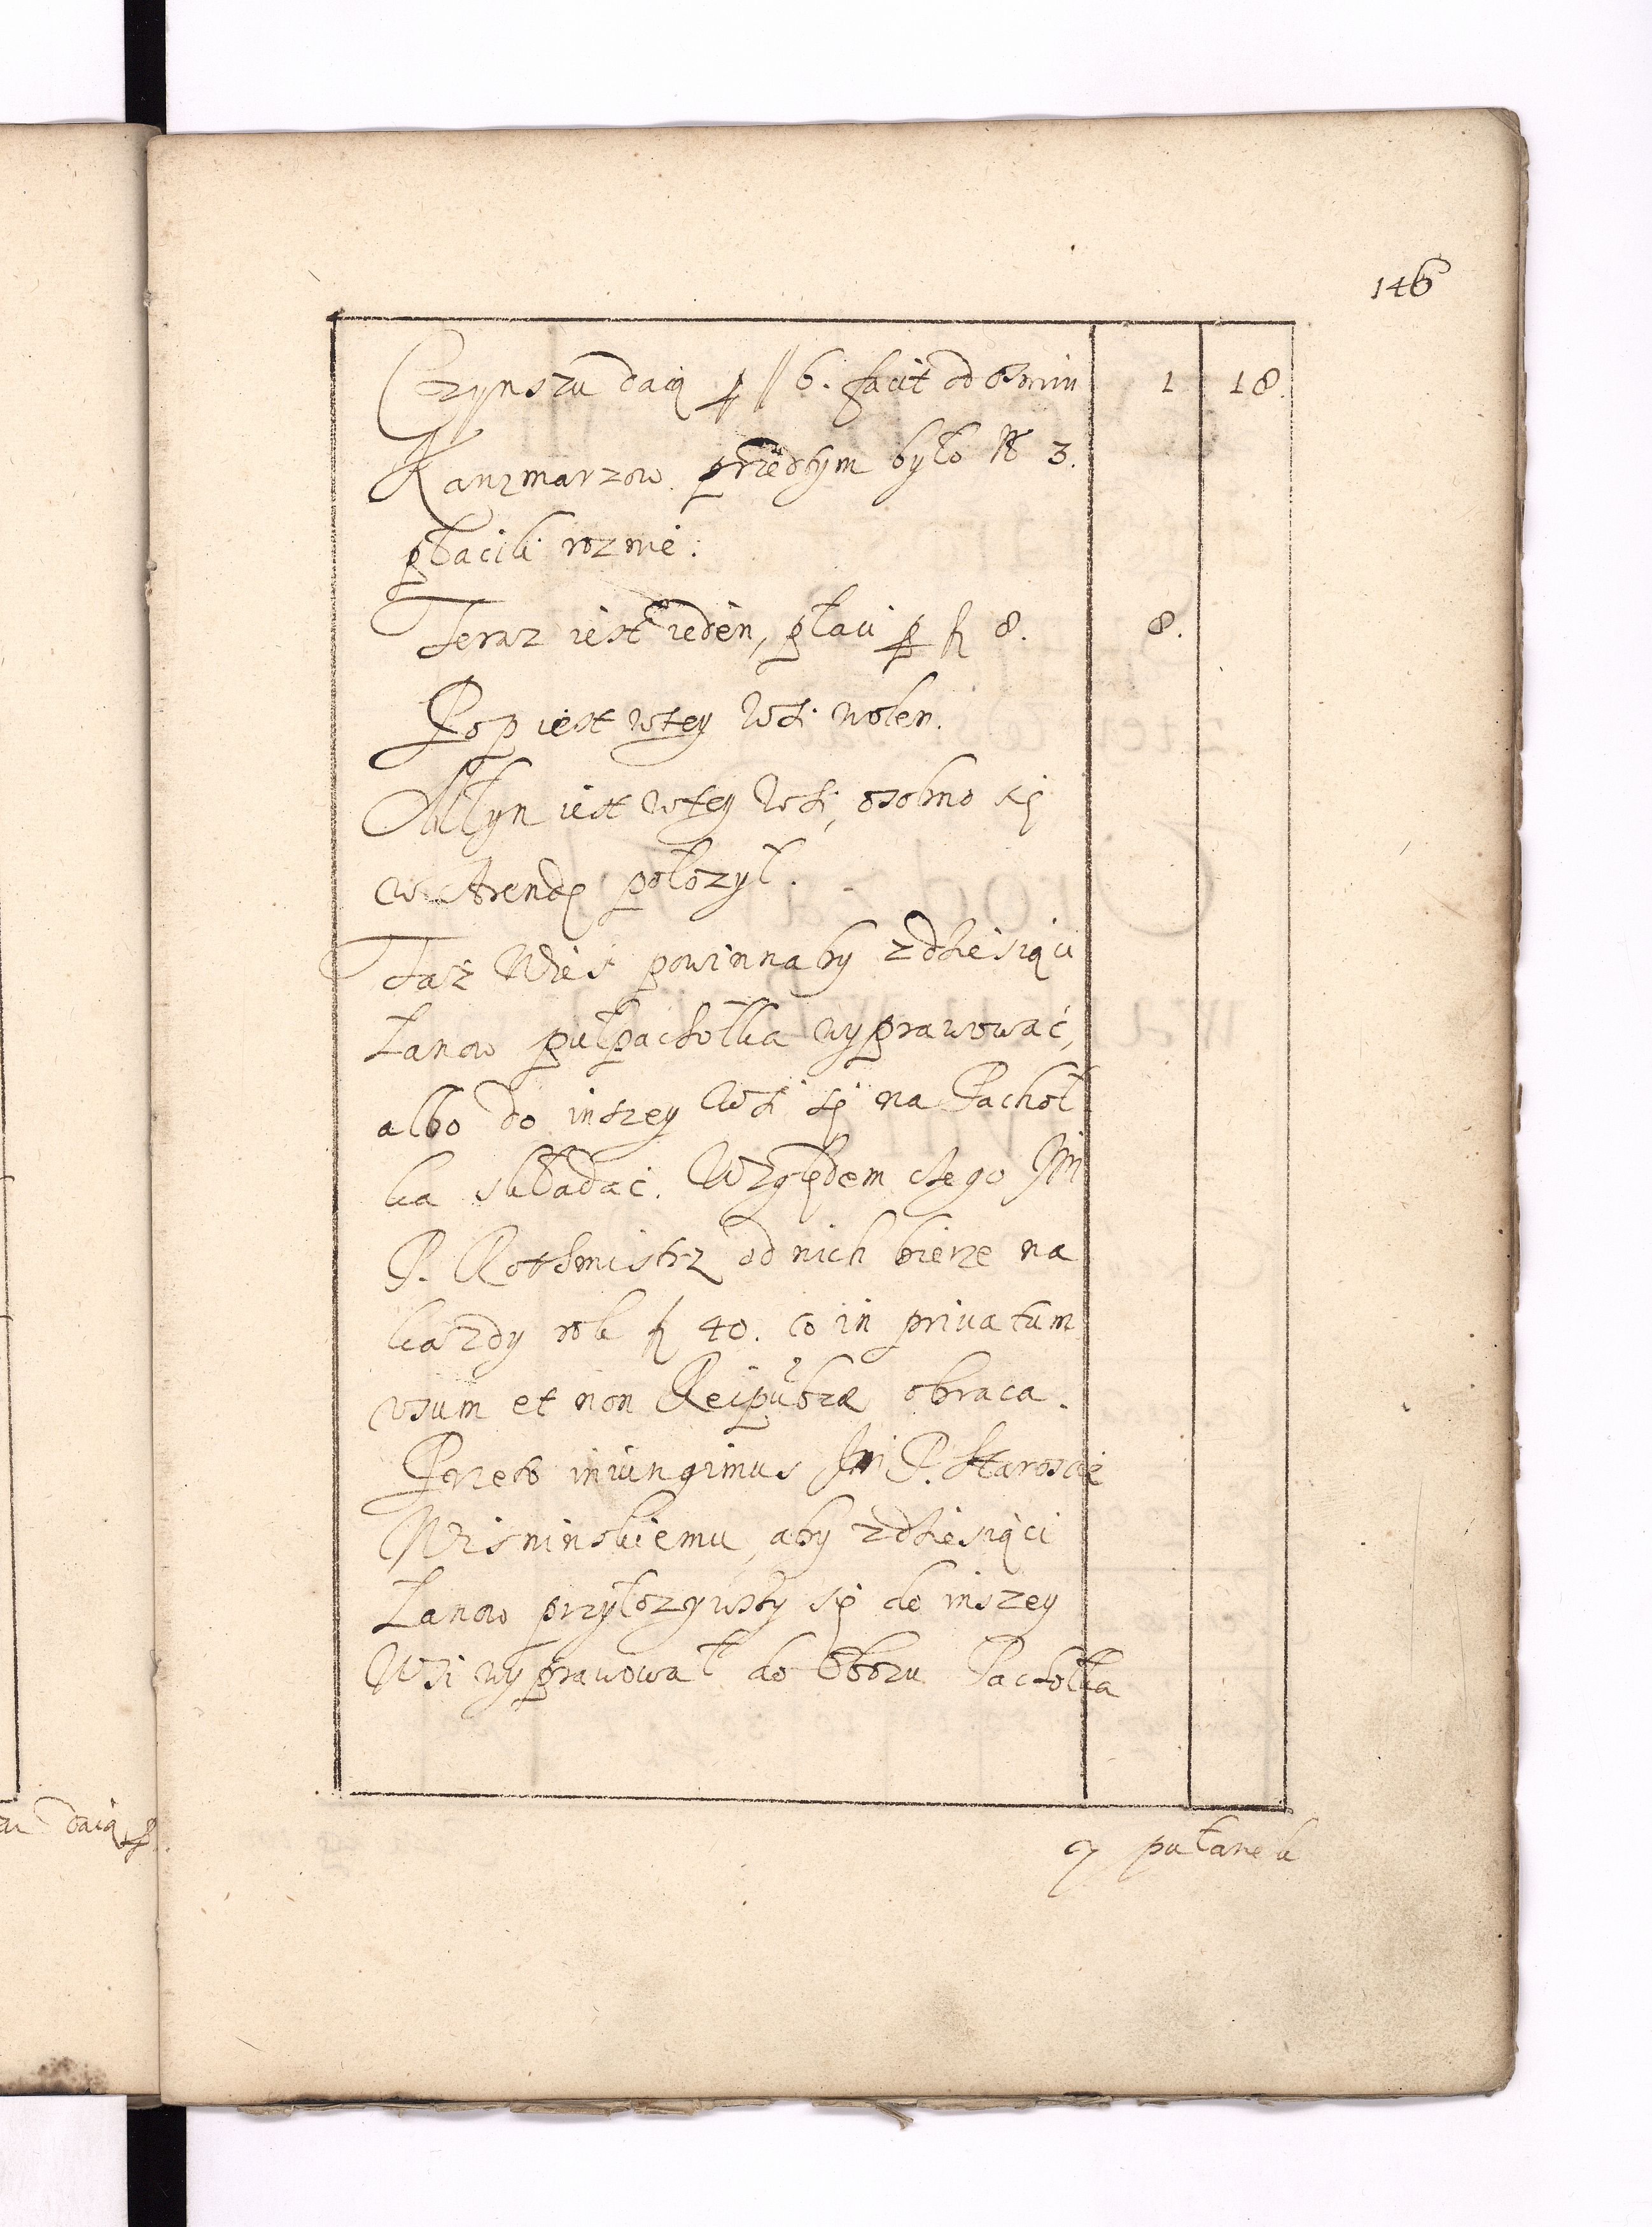 146
Czynszu daią ꝑ // 6. facit od osmiu 1 18.
Karczmarzow przedtym było N 3.
płacili roznie.
Teraz iest ieden, płaci ꝑ fl 8. 8.
Pop iest wtey wsi wolen.
Młyn iest wtey wsi, osobno się
w Arendę położył.
Taż Wieś powinna by zdziesiąci
Łanow pułpachołka wyprawować,
albo do inszey wsi się na Pachoł
ka składać. Względem czego Jm
P. Rothmistrz od nich bierze na
każdy rok fl 40. co in priuatum
vsum et non Reipubcæ obraca.
Przeto iniungimus Jm P. Staroscie
Wisninskiemu, aby zdziesiąci
Łanow przyłozywszy się do inszey
Wsi wyprawował do Obozu Pachołka
daią ꝑ